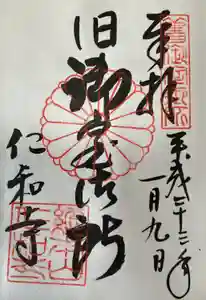 奉拝
平成二十三年
一月九日
旧御室御所
仁和寺